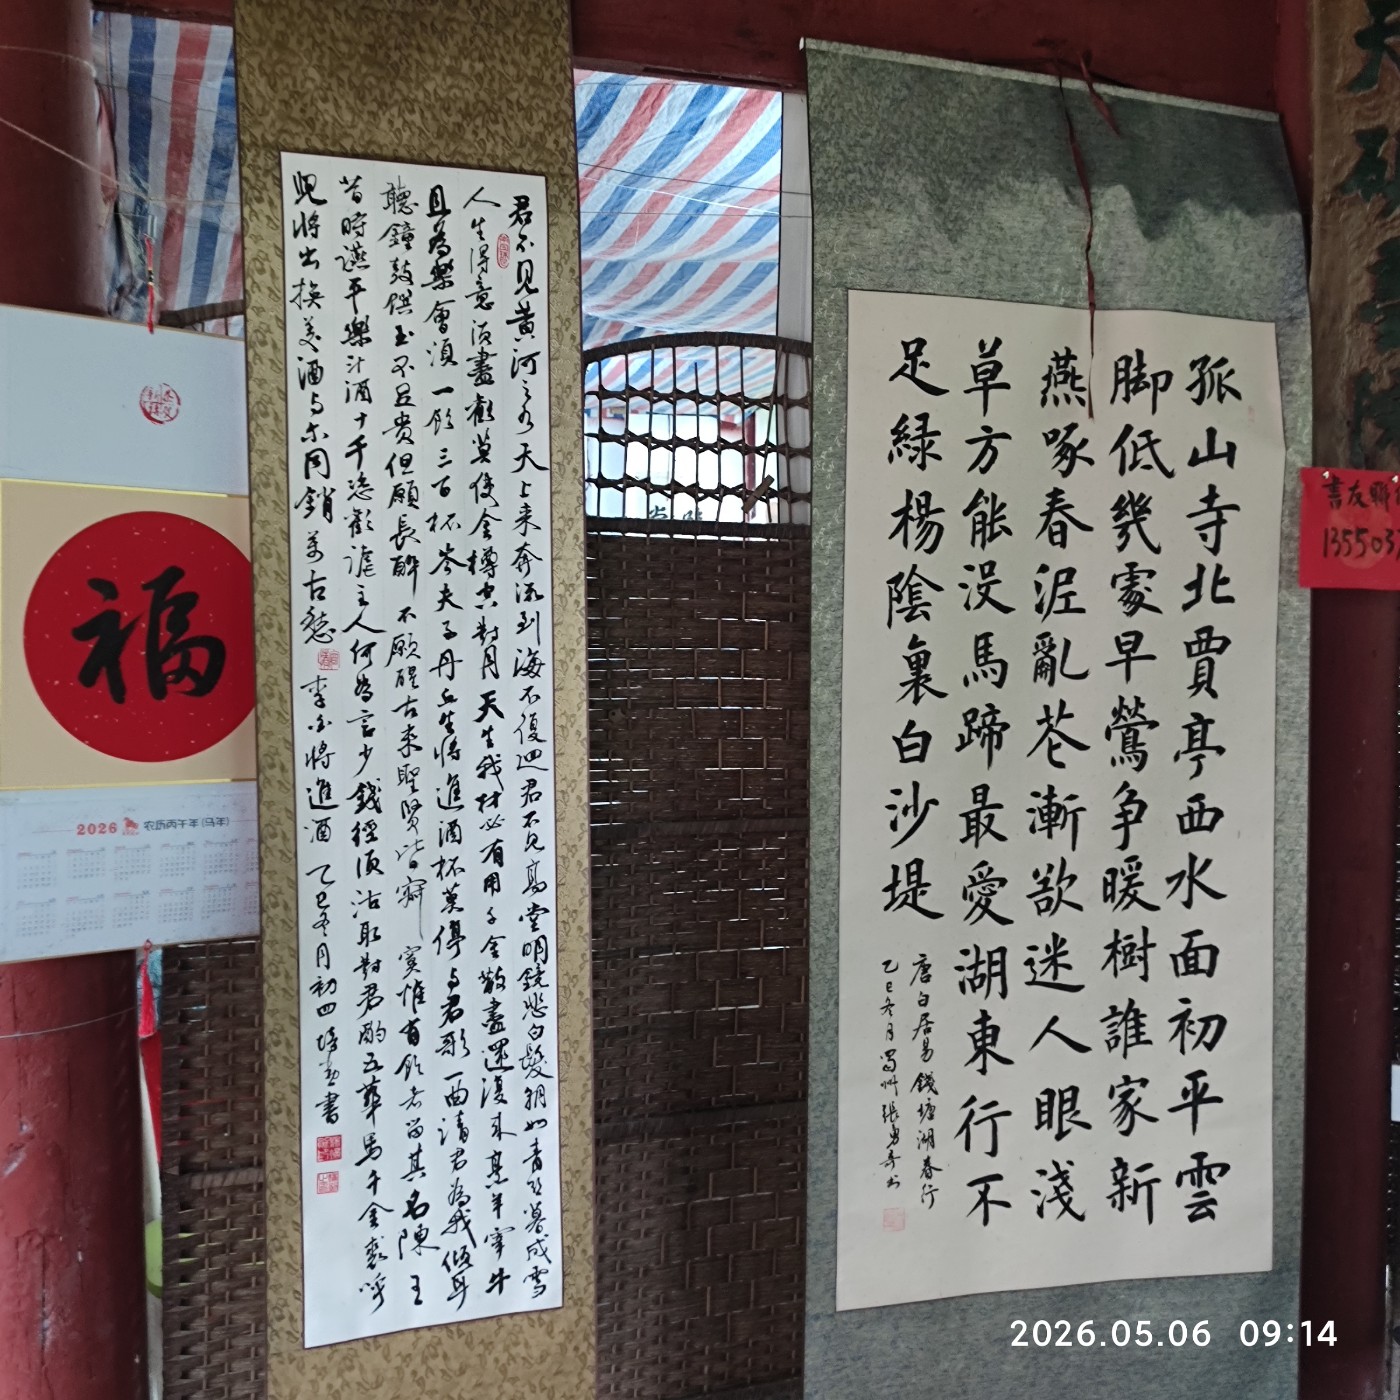 孤山寺北賈亭西水面初平雲
脚低幾處早鶯争暖樹誰家新
燕啄春泥亂花漸欲迷人眼淺
草方能没馬蹄最愛湖東行不
足緑楊陰裏白沙堤
唐白居易錢塘湖春行
乙巳冬月蜀州張
君不见黄河之水天上来奔流到海不復迴君不見高堂明鏡悲白髮朝如青丝暮成雪
人生得意须盡歡莫使金樽空對月天生我材必有用千金散盡還復来烹羊宰牛
且為樂會須一飲三百杯岑夫子丹丘生将進酒杯莫停与君歌一曲請君為我倾耳
聽鐘鼓饌玉不足貴但願長醉不願醒古来聖賢皆寂寞惟有飲者留其名陳王
昔時讌平樂斗酒十千恣歡謔主人何為言少錢徑須沽取對君酌五華馬千金裘呼
兒将出换美酒与尔同銷萬古愁 李白将進酒 乙巳冬月初四 書
福
2026 农历丙午年(马年)
書友聊
135503
2026.05.06 09:14